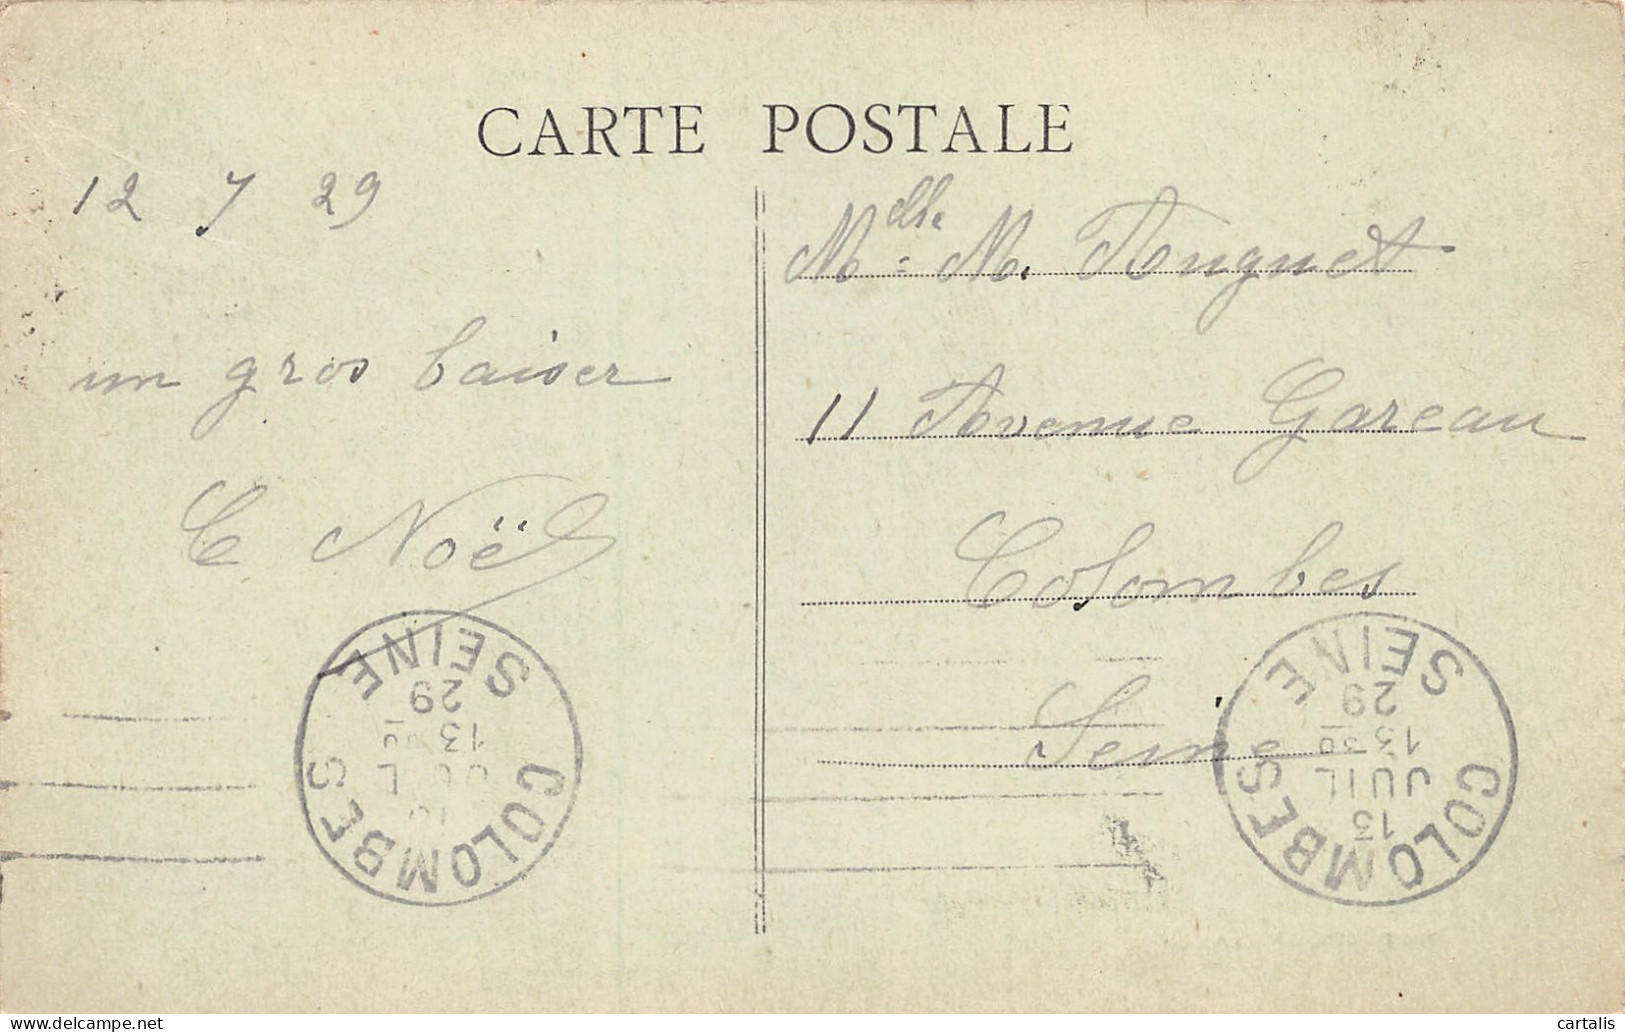 CARTE POSTALE
12 7 29
un gros baiser
C Noël
Melle M. Huguet
11 Avenue Gareau
Colombes
Seine
COLOMBES
13
SEINE
29
COLOMBES
13
JUIL
13 30
29
SEINE
delcampe.net
cartalis